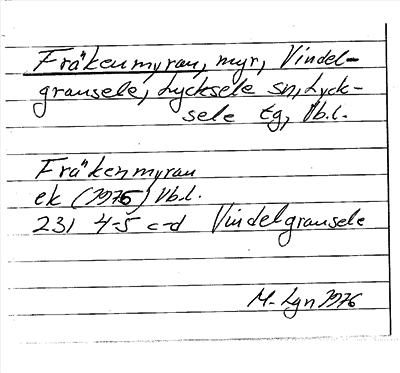 Fräkenmyran, myr, Vindel-
gransele, Lycksele sn, Lyck-
sele tg, Vb.l.
Fräkenmyran
ek (1975) Vb.l.
231 4-5 c-d Vindelgransele
M. Lgn 1976